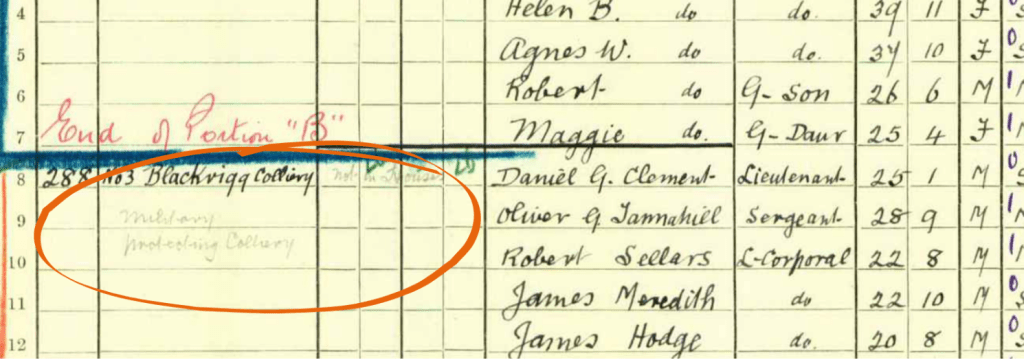 4 Helen B. do do. 39 11 F
5 Agnes W. do do. 37 10 F
6 Robert do G-Son 26 6 M
End of Portion "B"
7 Maggie do. G-Daur 25 4 F
8 288 No3 Blackrigg Colliery not in Houses Daniel G. Clement Lieutenant 25 1 M
9 Military Oliver G Tannahill Sergeant 28 9 M
protecting Colliery
10 Robert Sellars L-Corporal 22 8 M
11 James Meredith do 22 10 M
12 James Hodge do. 20 8 M